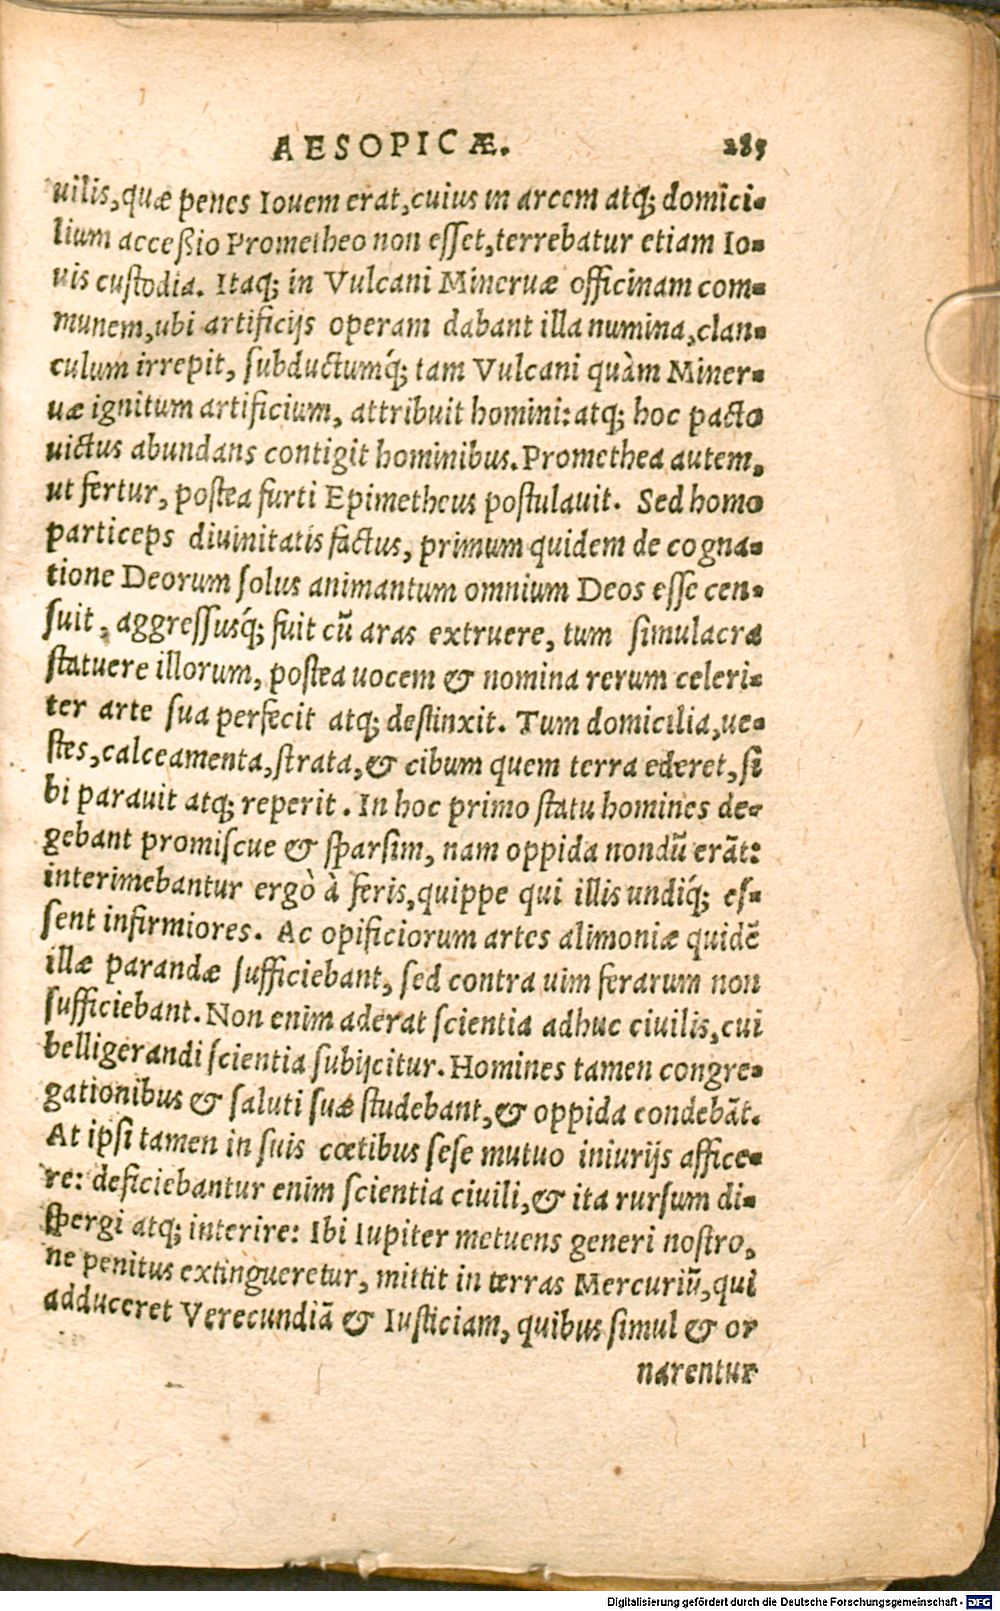 AESOPICÆ. 285
uilis, quæ penes Iouem erat, cuius in arcem atq; domici-
lium acceßio Prometheo non esset, terrebatur etiam Io-
uis custodia. Itaq; in Vulcani Mineruæ officinam com-
munem, ubi artificijs operam dabant illa numina, clan-
culum irrepit, subductumq́; tam Vulcani quàm Miner-
uæ ignitum artificium, attribuit homini: atq; hoc pacto
uictus abundans contigit hominibus. Promethea autem,
ut fertur, postea furti Epimetheus postulauit. Sed homo
particeps diuinitatis factus, primum quidem de cogna-
tione Deorum solus animantum omnium Deos esse cen-
suit, aggressusq́; fuit cũ aras extruere, tum simulacra
statuere illorum, postea uocem & nomina rerum celeri-
ter arte sua perfecit atq; destinxit. Tum domicilia, ue-
stes, calceamenta, strata, & cibum quem terra ederet, si
bi parauit atq; reperit. In hoc primo statu homines de-
gebant promiscue & sparsim, nam oppida nondũ erãt:
interimebantur ergò à feris, quippe qui illis undiq́; es-
sent infirmiores. Ac opificiorum artes alimoniæ quidẽ
illæ parandæ sufficiebant, sed contra uim ferarum non
sufficiebant. Non enim aderat scientia adhuc ciuilis, cui
belligerandi scientia subijcitur. Homines tamen congre-
gationibus & saluti suæ studebant, & oppida condebãt.
At ipsi tamen in suis cœtibus sese mutuo iniurijs affice-
re: deficiebantur enim scientia ciuili, & ita rursum di-
spergi atq; interire: Ibi Iupiter metuens generi nostro,
ne penitus extingueretur, mittit in terras Mercuriũ, qui
adduceret Verecundiã & Iusticiam, quibus simul & or
narentur
Digitalisierung gefördert durch die Deutsche Forschungsgemeinschaft - DFG